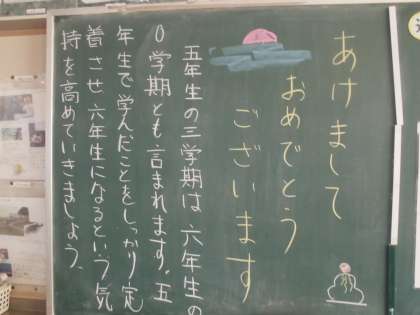 あけまして
おめでとう
ございます
五年生の三学期は六年生の
０学期とも言われます。五
年生で学んだことをしっかり定
着させ六年生になるという気
持を高めていきましょう。